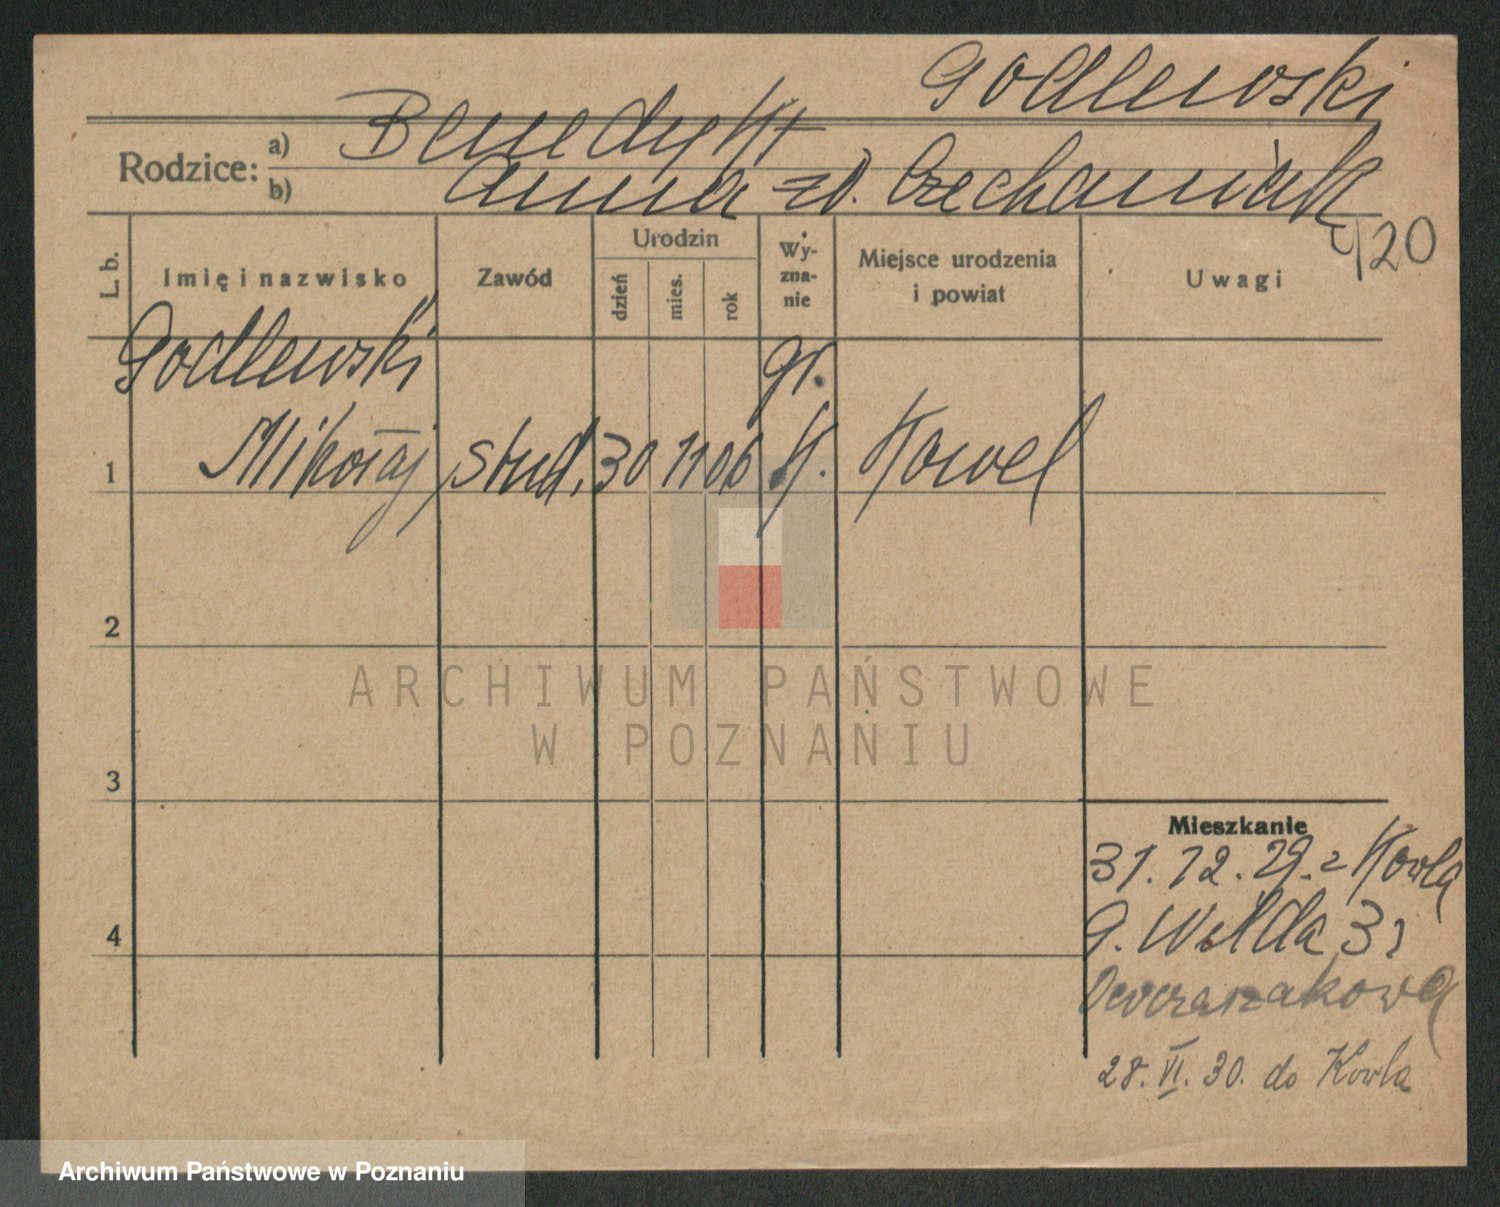 Godlewski
Rodzice: a) Benedykt
b) Anna zd. Czechaniuk
120
L. b.
Imię i nazwisko
Zawód
Urodzin
dzień
mies.
rok
Wy-
zna-
nie
Miejsce urodzenia
i powiat
Uwagi
Godlewski gr.
1 Mikołaj stud. 30 11 06 k. Kowel
2
3
4
Mieszkanie
31.12.29. z Kowla
G. Wilda 3
28. VI. 30. do Kowla
ARCHIWUM PAŃSTWOWE
W POZNANIU
Archiwum Państwowe w Poznaniu